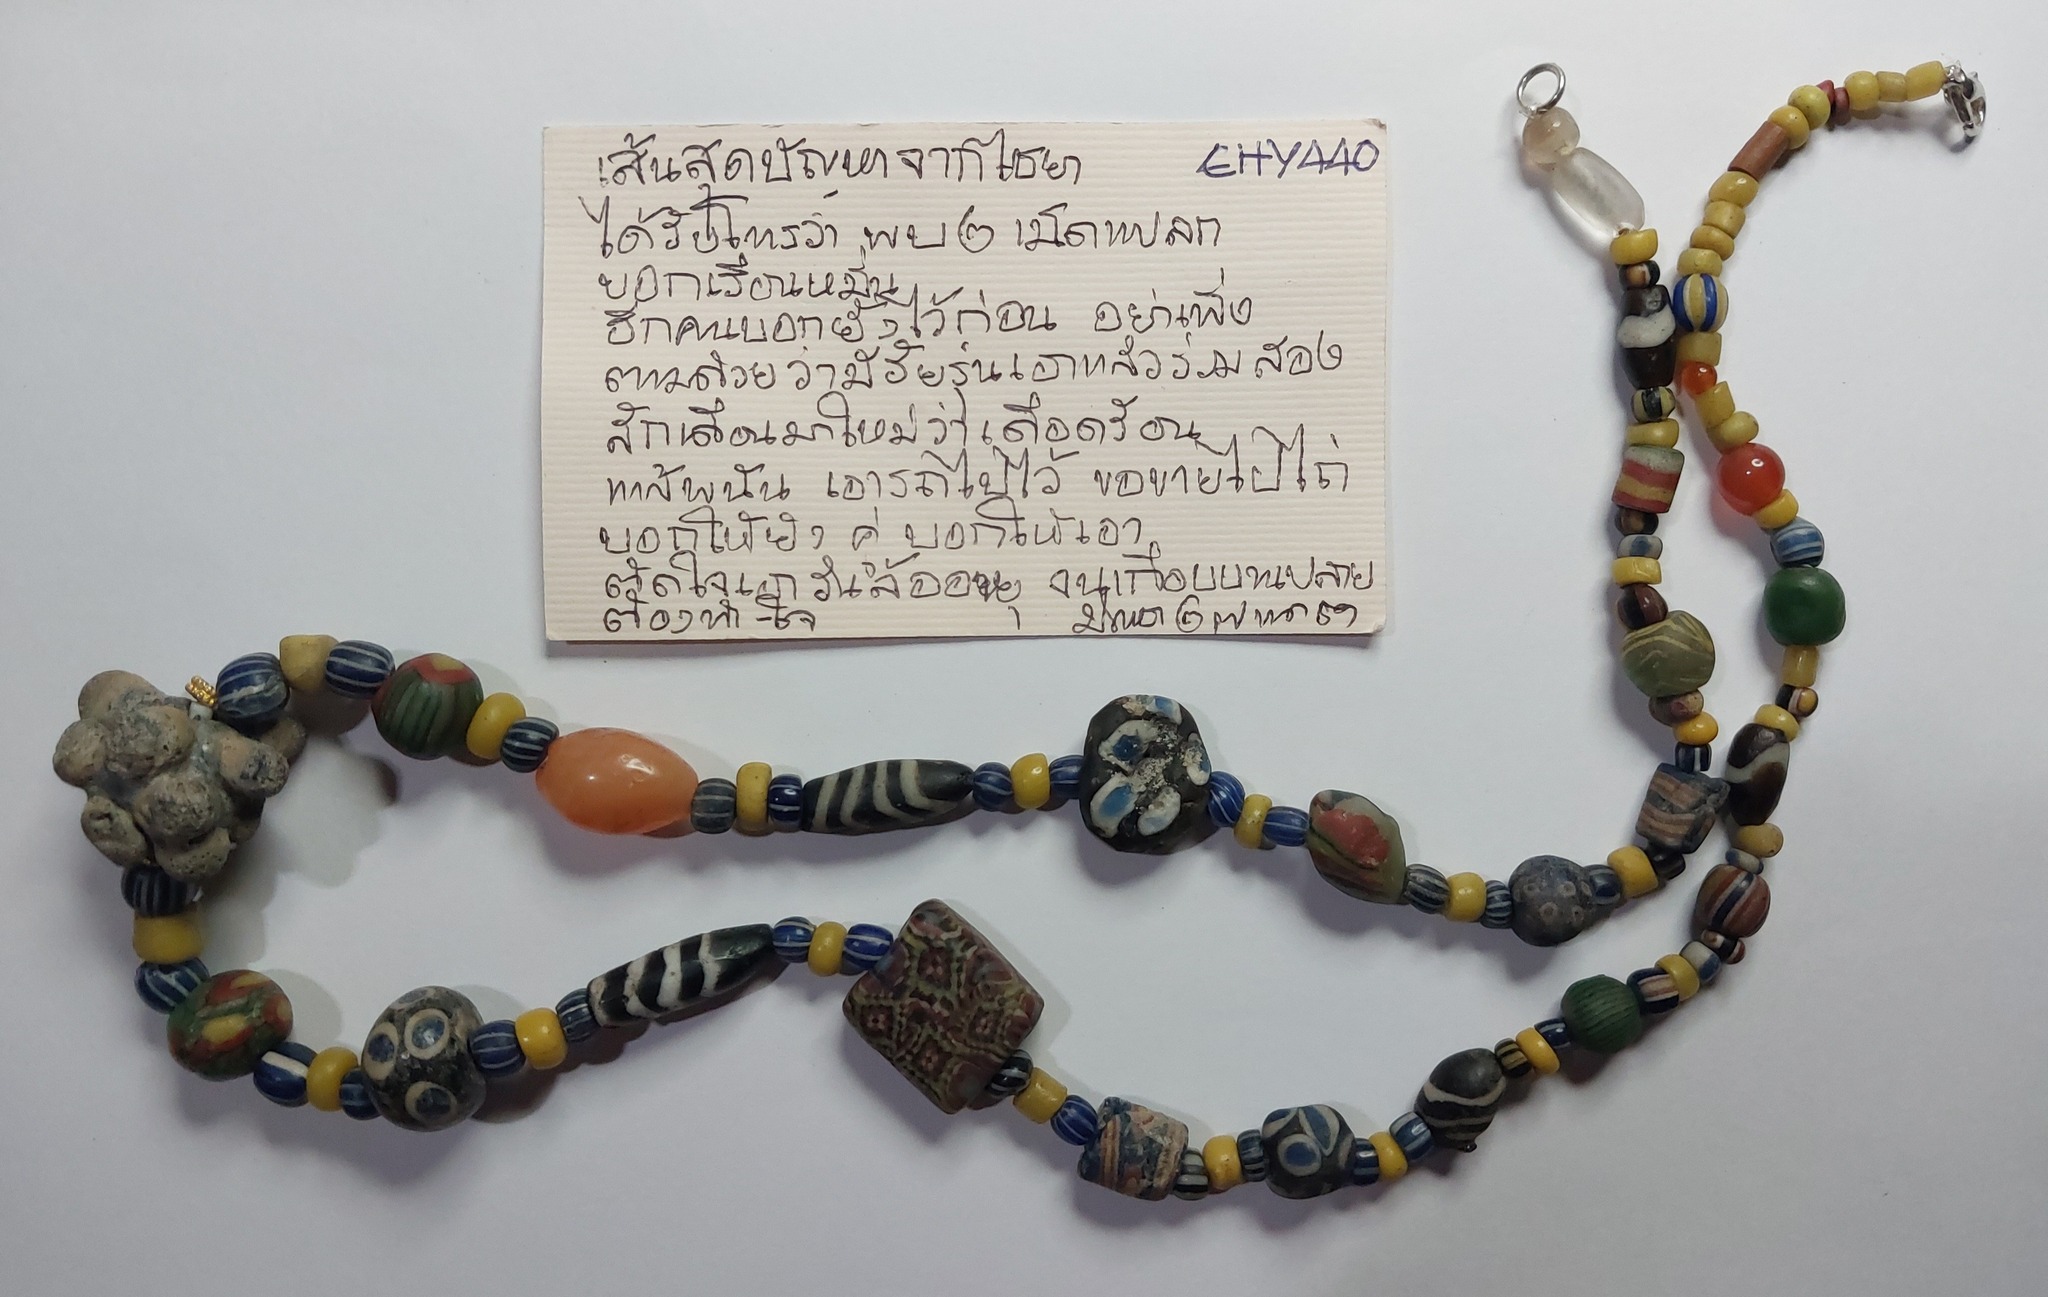 เส้นสุดปัญหาจากไชยา EHY440
ได้รับโทรว่า พบ ๒ เม็ดแปลก
บอกเรือนหมื่น
อีกคนบอกยั้งไว้ก่อน อย่าเพิ่ง
ตามด้วยว่ามีวัยรุ่นเอา ร่วมสอง
สักเดือนมาใหม่ว่าเดือดร้อน
พนัน เอารถไปไว้ ขอขายไปไถ่
บอกให้ยั้ง คู่ บอกให้เอา
ตัดใจ งานเกือบบานปลาย
ต้องทำใจ มีนา ๖๗